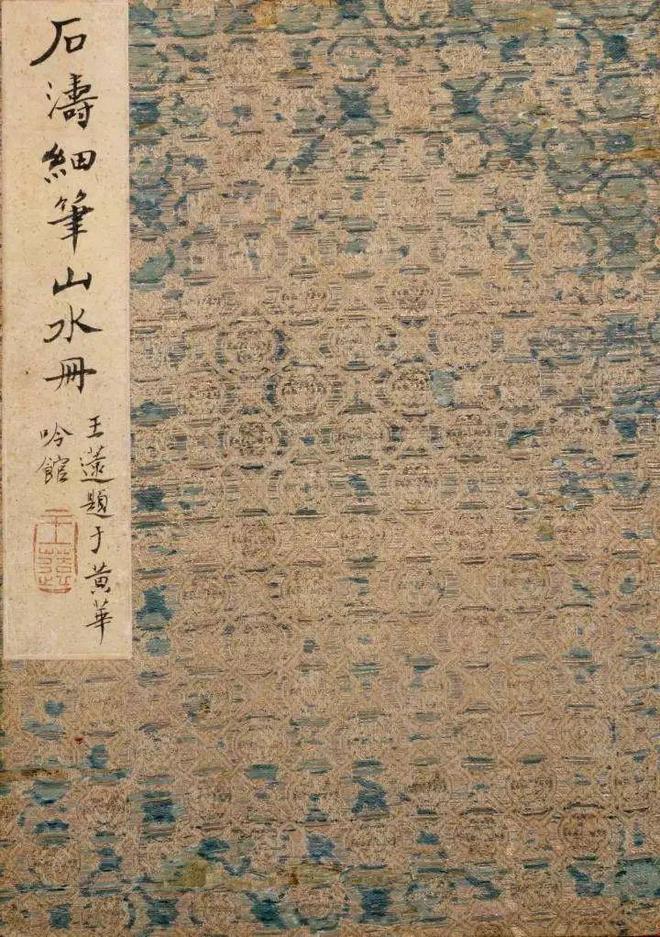 石濤細筆山水冊
王蘧題于黃華
吟館